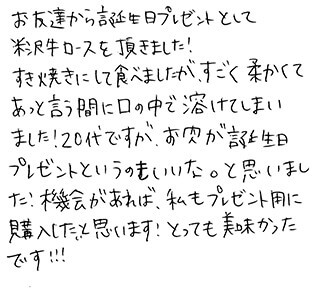 お友達から誕生日プレゼントとして
米沢牛ロースを頂きました!
すき焼きにして食べましたが、すごく柔かくて
あっと言う間に口の中で溶けてしまい
ました!20代ですが、お肉が誕生日
プレゼントというのもいいな。と思いまし
た!機会があれば、私もプレゼント用に
購入したいと思います!とっても美味かった
です!!!